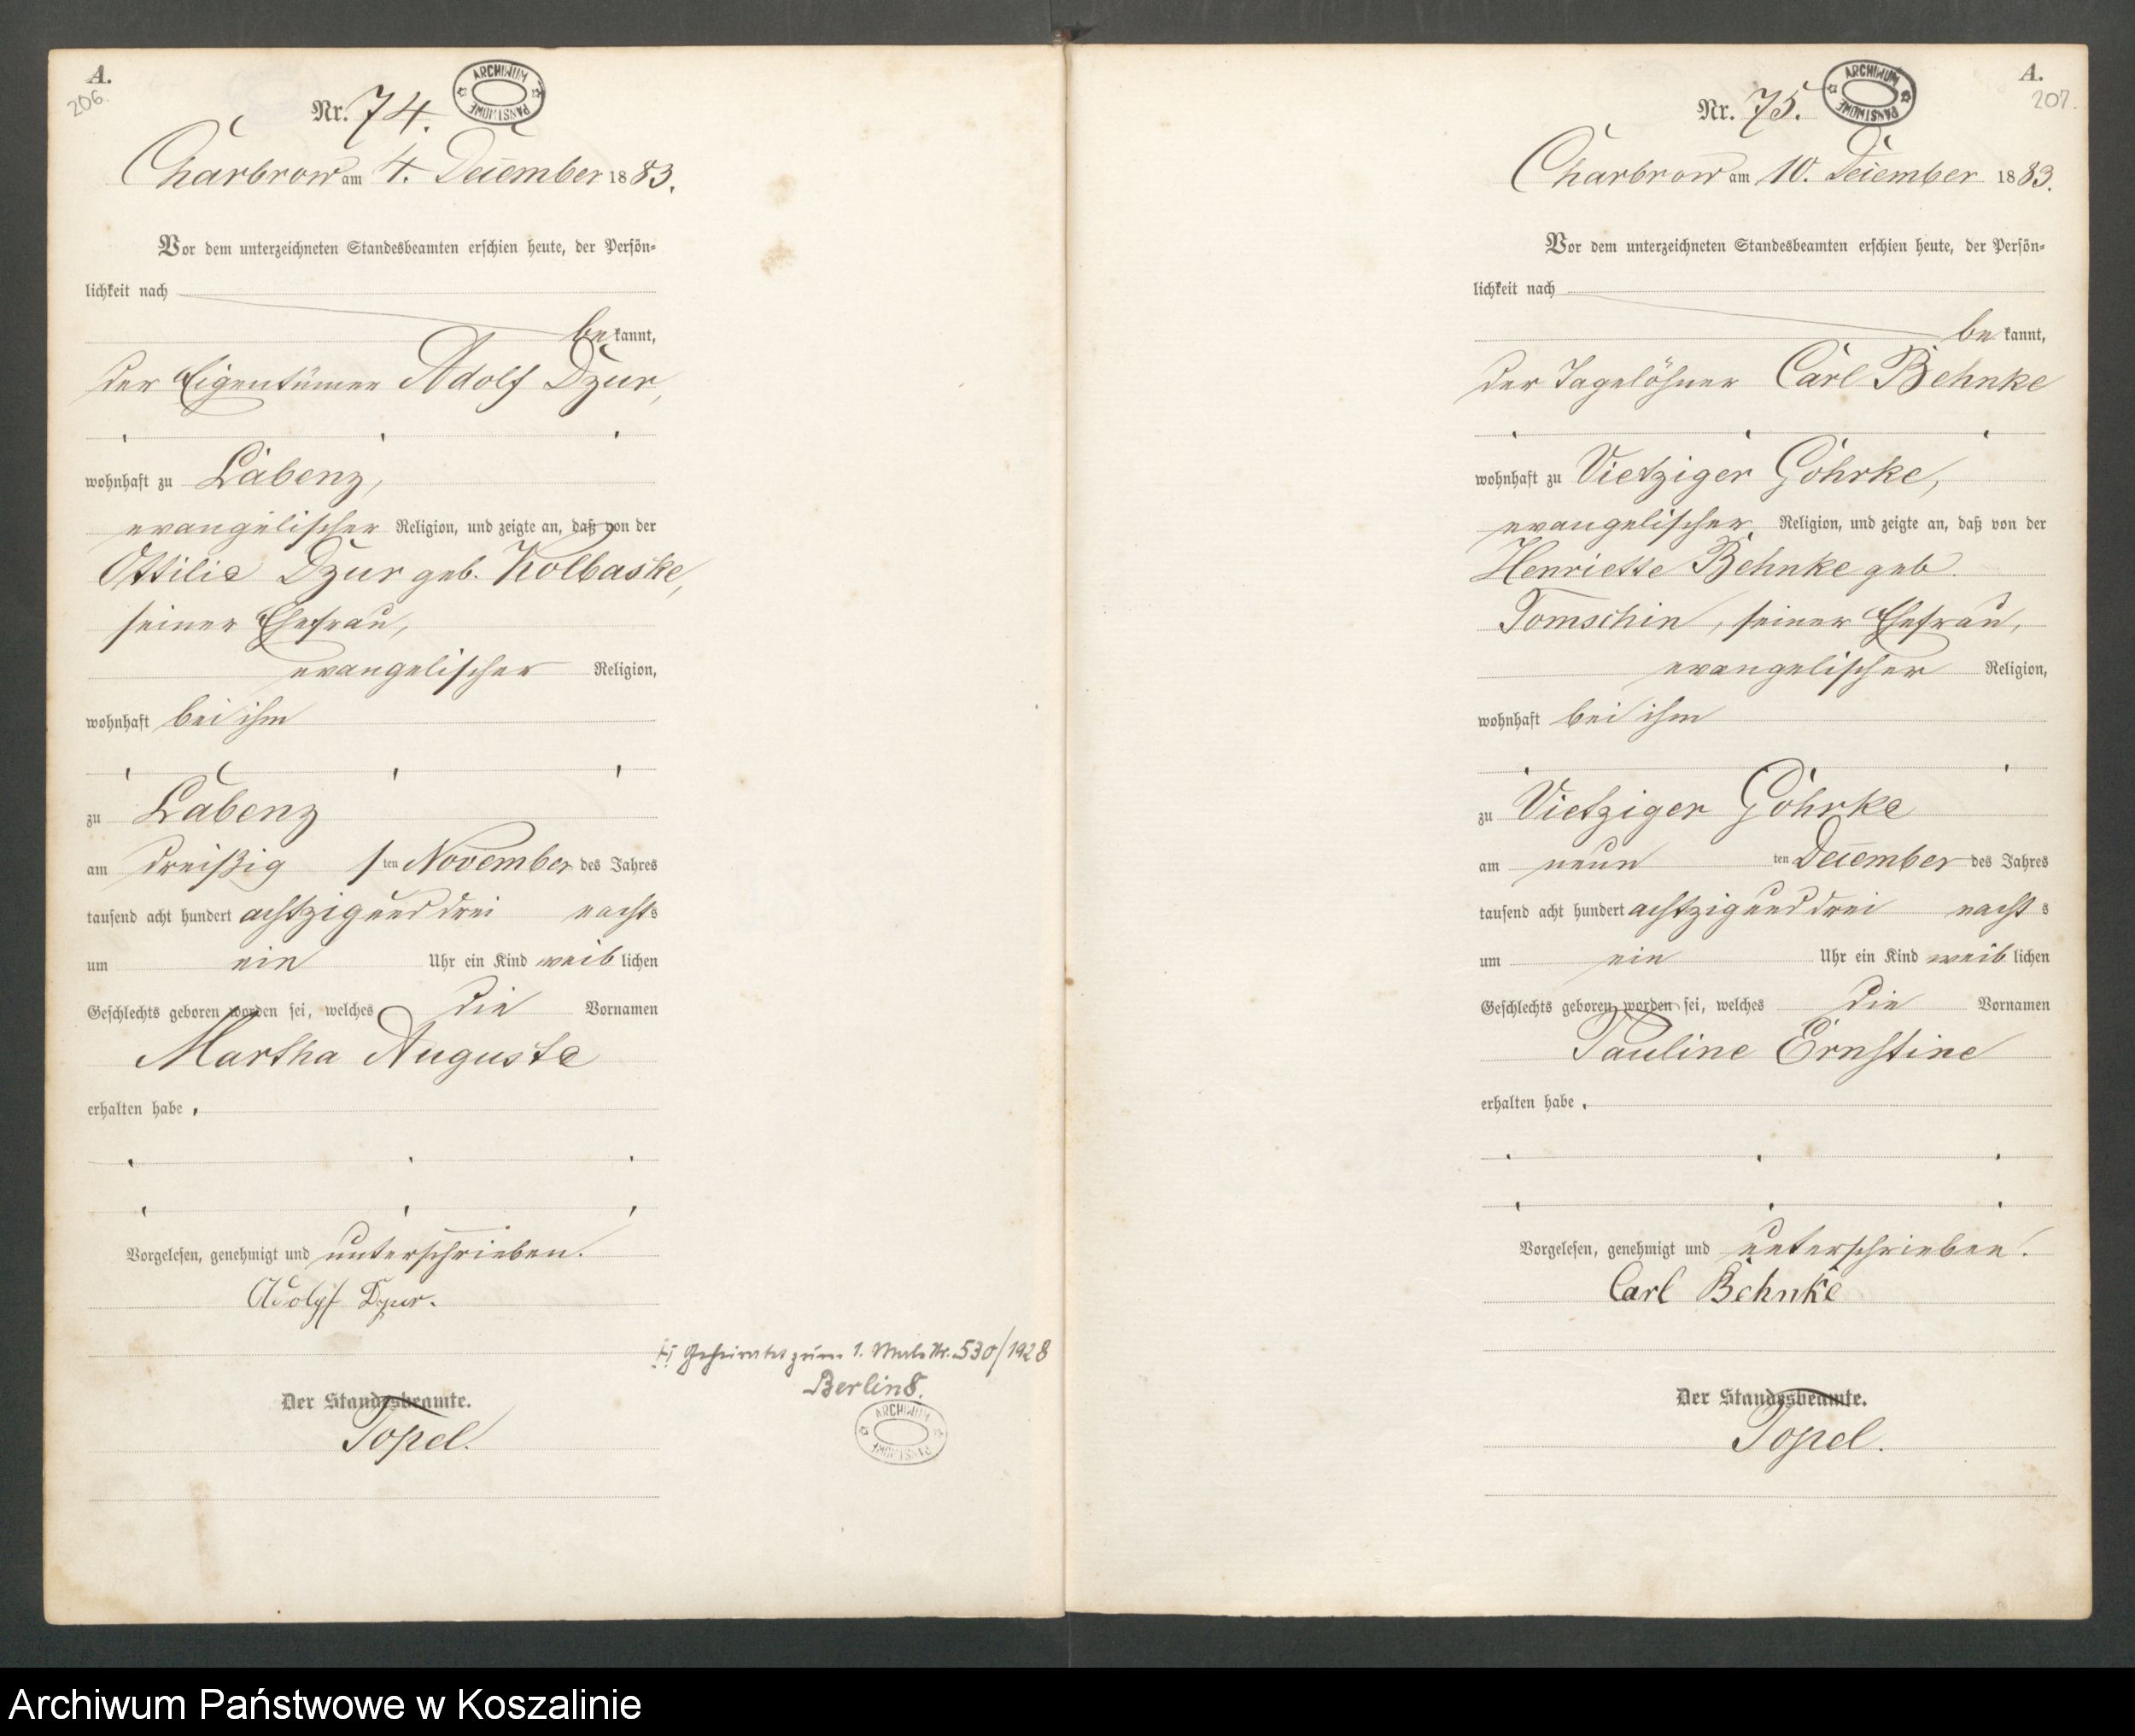 A.
206.
Nr. 74.
ARCHIWUM PAŃSTWOWE
Charbrow am 4. Dezember 1883.
Vor dem unterzeichneten Standesbeamten erschien heute, der Persön-
lichkeit nach
bekannt,
der Eigentümer Adolf Dzur,
wohnhaft zu Labenz,
evangelischer Religion, und zeigte an, daß von der
Ottilie Dzur geb. Kolbaske,
seiner Ehefrau,
evangelischer Religion,
wohnhaft bei ihm
zu Labenz
am dreißig sten November des Jahres
tausend acht hundert achtzig und drei nachts
um ein Uhr ein Kind weiblichen
Geschlechts geboren worden sei, welches die Vornamen
Martha Auguste
erhalten habe.
Vorgelesen, genehmigt und unterschrieben.
Adolf Dzur.
Der Standesbeamte.
Topel.
geheiratet zum 1. Male Nr. 530/1928
Berlin 8.
ARCHIWUM PAŃSTWOWE
A.
207.
Nr. 75.
ARCHIWUM PAŃSTWOWE
Charbrow am 10. Dezember 1883.
Vor dem unterzeichneten Standesbeamten erschien heute, der Persön-
lichkeit nach
bekannt,
der Tagelöhner Carl Behnke
wohnhaft zu Vietziger Göhrke,
evangelischer Religion, und zeigte an, daß von der
Henriette Behnke geb.
Tomschin, seiner Ehefrau,
evangelischer Religion,
wohnhaft bei ihm
zu Vietziger Göhrke
am neun ten Dezember des Jahres
tausend acht hundert achtzig und drei nachts
um ein Uhr ein Kind weiblichen
Geschlechts geboren worden sei, welches die Vornamen
Pauline Ernstine
erhalten habe.
Vorgelesen, genehmigt und unterschrieben.
Carl Behnke
Der Standesbeamte.
Topel.
Archiwum Państwowe w Koszalinie